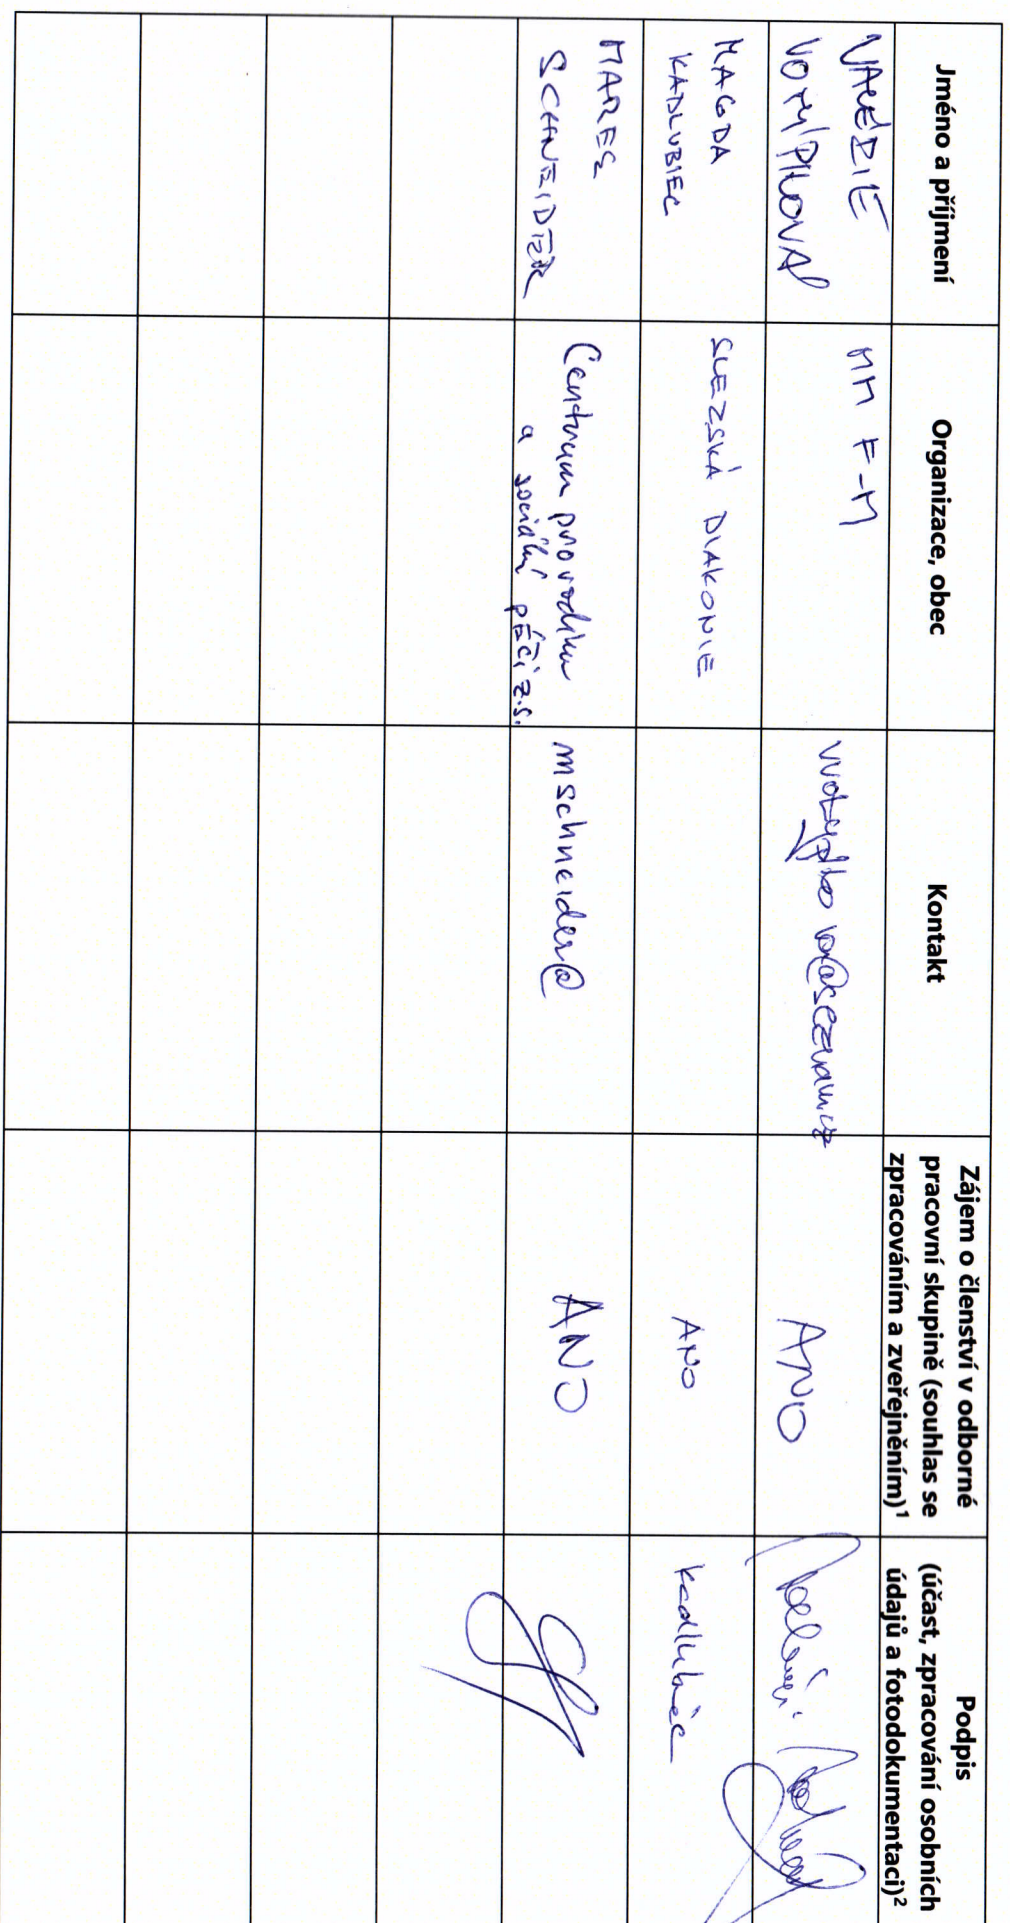 Jméno a příjmení
Organizace, obec
Kontakt
Zájem o členství v odborné
pracovní skupině (souhlas se
zpracováním a zveřejněním)¹
Podpis
(účast, zpracování osobních
údajů a fotodokumentaci)²
MM F-M
ANO
MAGDA
KADLUBIEC
SLEZSKÁ DIAKONIE
ANO
Kadlubiec
MAREK
SCHNEIDER
Centrum pro rodinu
a sociální péči z.s.
mschneider@
ANO